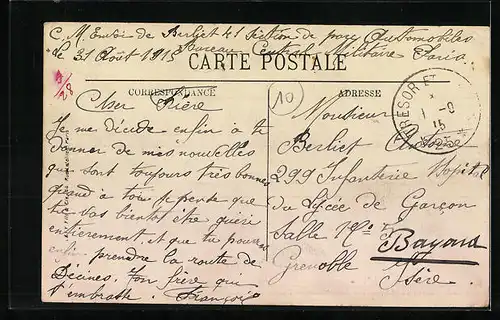 C. M. Envoi de Berliet 41 Section de parc Automobiles
le 31 Août 1915 Bureau Central Militaire Paris
CARTE POSTALE
CORRESPONDANCE
ADRESSE
9/28
10
TRESOR ET
1 - 9
15
Cher Frère
Je me décide enfin à te
donner de mes nouvelles
qui sont toujours très bonnes
quand à toi je pense que
tu vas bientôt être guéri
entièrement, et que tu pourras
enfin prendre la route de
Décines. Ton frère qui
t'embrasse. François
Monsieur
Berliet
299 Infanterie Hôpital
du Lycée de Garçon
Salle No
Bayard
Grenoble Isère